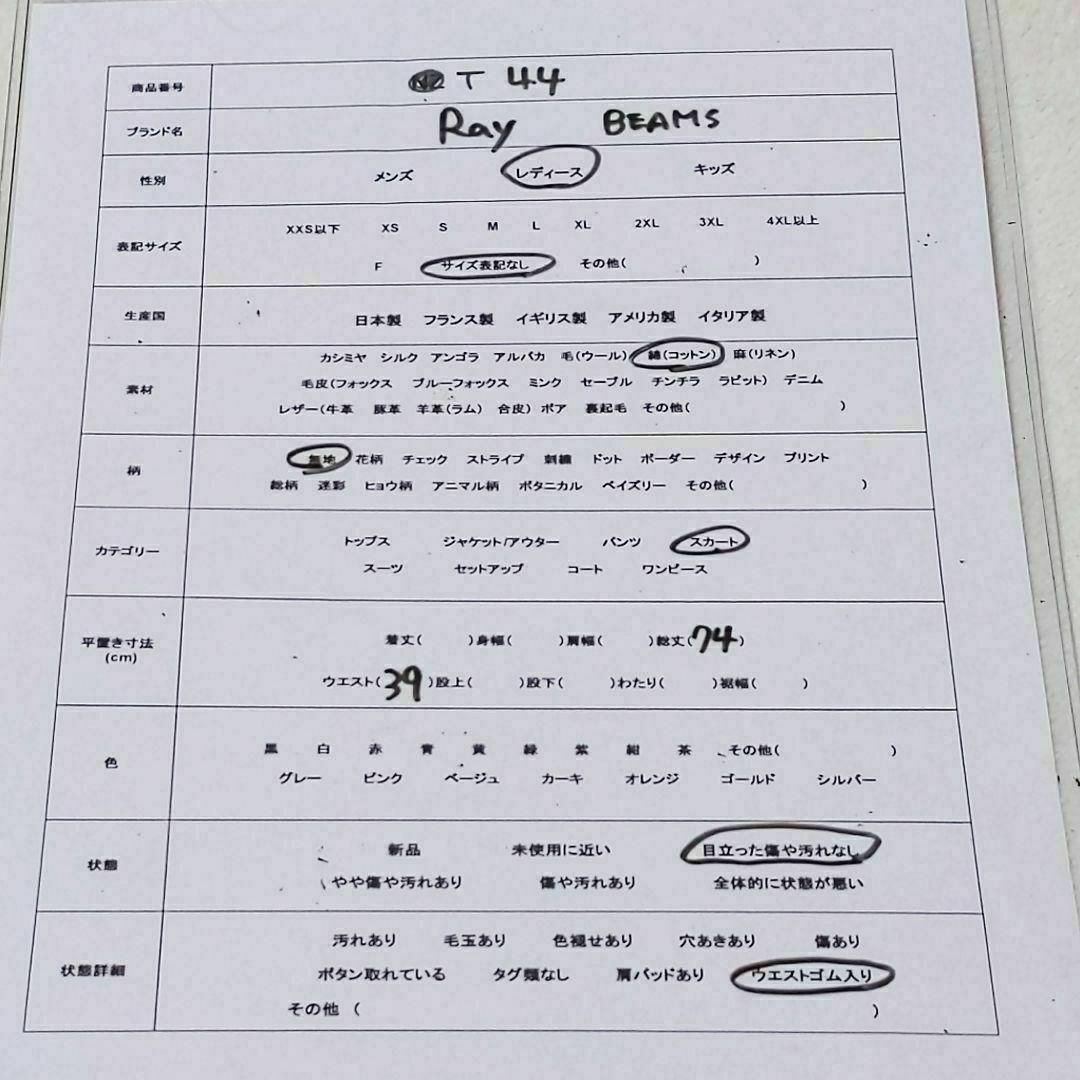 商品番号 T 44
ブランド名 Ray BEAMS
性別 メンズ レディース キッズ
XXS以下 XS S M L XL 2XL 3XL 4XL以上
表記サイズ
F サイズ表記なし その他( )
生産国 日本製 フランス製 イギリス製 アメリカ製 イタリア製
カシミヤ シルク アンゴラ アルパカ 毛(ウール) 綿(コットン) 麻(リネン)
素材 毛皮(フォックス ブルーフォックス ミンク セーブル チンチラ ラビット) デニム
レザー(牛革 豚革 羊革(ラム) 合皮) ボア 裏起毛 その他( )
柄 無地 花柄 チェック ストライプ 刺繍 ドット ボーダー デザイン プリント
総柄 迷彩 ヒョウ柄 アニマル柄 ボタニカル ペイズリー その他( )
カテゴリー トップス ジャケット/アウター パンツ スカート
スーツ セットアップ コート ワンピース
平置き寸法 着丈( )身幅( )肩幅( )総丈(74)
(cm)
ウエスト(39)股上( )股下( )わたり( )裾幅( )
黒 白 赤 青 黄 緑 紫 紺 茶 その他( )
色
グレー ピンク ベージュ カーキ オレンジ ゴールド シルバー
新品 未使用に近い 目立った傷や汚れなし
状態
やや傷や汚れあり 傷や汚れあり 全体的に状態が悪い
汚れあり 毛玉あり 色褪せあり 穴あきあり 傷あり
状態詳細 ボタン取れている タグ類なし 肩パッドあり ウエストゴム入り
その他 ( )